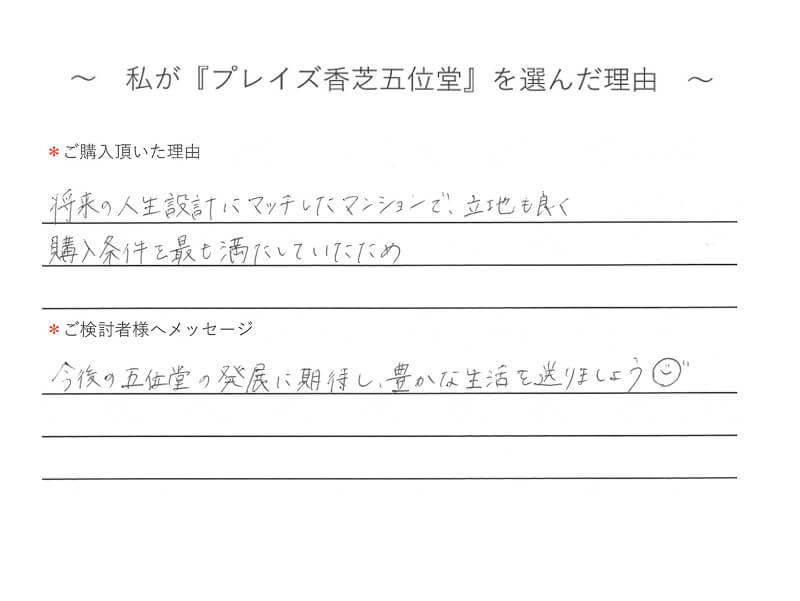 ～ 私が『プレイズ香芝五位堂』を選んだ理由 ～
＊ご購入頂いた理由
将来の人生設計にマッチしたマンションで、立地も良く
購入条件を最も満たしていたため
＊ご検討者様へメッセージ
今後の五位堂の発展に期待し、豊かな生活を送りましょう